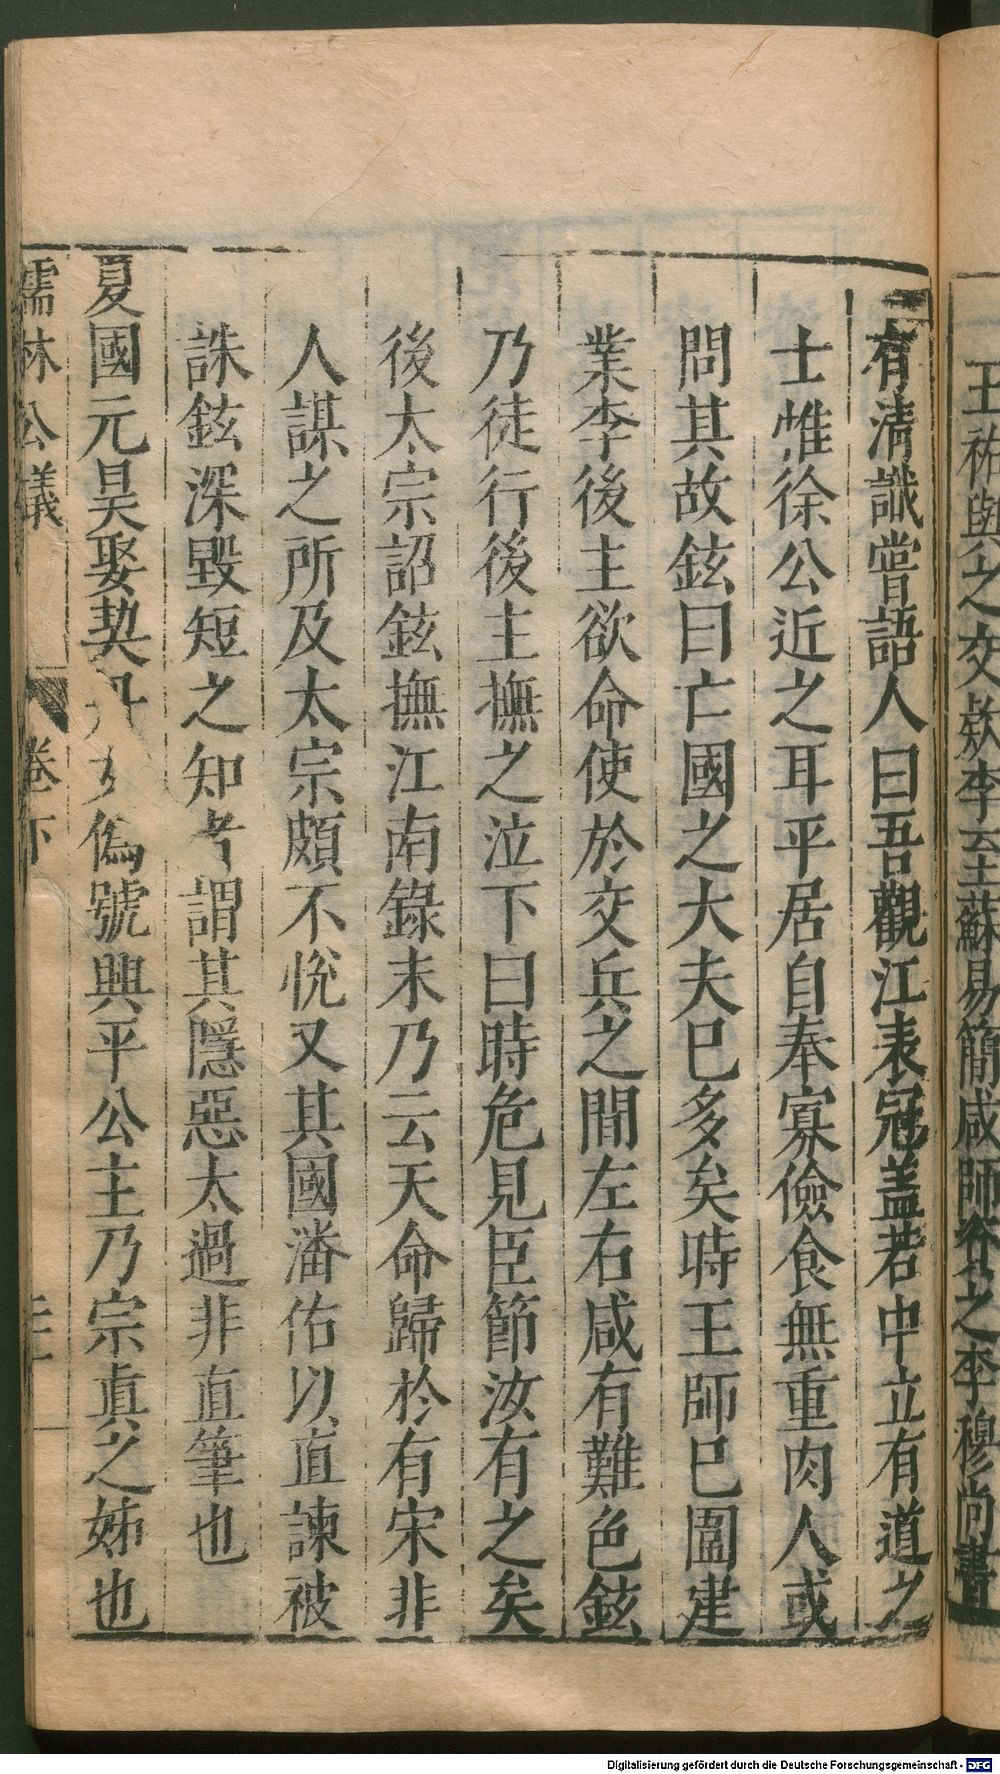 王祐與之交欵李至蘇易簡咸師咨之李穆尚書
有清識嘗語人曰吾觀江表冠盖若中立有道之
士惟徐公近之耳平居自奉寡儉食無重肉人或
問其故鉉曰亡國之大夫已多矣時王師已圍建
業李後主欲命使於交兵之間左右咸有難色鉉
乃徒行後主撫之泣下曰時危見臣節汝有之矣
後太宗詔鉉撫江南錄末乃云天命歸於有宋非
人謀之所及太宗頗不悅又其國潘佑以直諫被
誅鉉深毀短之知者謂其隱惡太過非直筆也
夏國元昊娶契丹女偽號興平公主乃宗眞之姊也
儒林公議 卷下
Digitalisierung gefördert durch die Deutsche Forschungsgemeinschaft - DFG